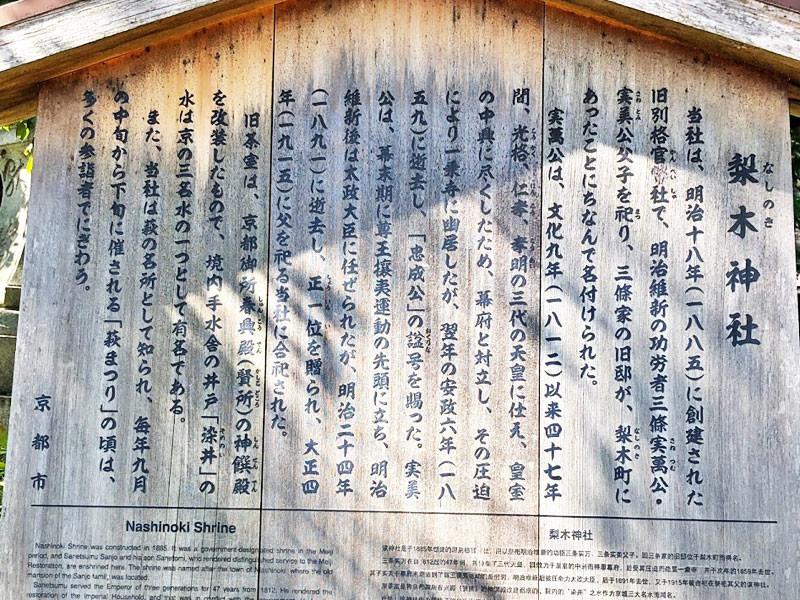 梨木神社
当社は、明治十八年(一八八五)に創建された
旧別格官幣社で、明治維新の功労者三條実萬公・
実美公父子を祀り、三條家の旧邸が、梨木町に
あったことにちなんで名付けられた。
実萬公は、文化九年(一八一二)以来四十七年
間、光格、仁孝、孝明の三代の天皇に仕え、皇室
の中興に尽くしたため、幕府と対立し、その圧迫
により一乗寺に幽居したが、翌年の安政六年(一八
五九)に逝去し、「忠成公」の諡号を賜った。実美
公は、幕末期に尊王攘夷運動の先頭に立ち、明治
維新後は太政大臣に任ぜられたが、明治二十四年
(一八九一)に逝去し、正一位を贈られ、大正四
年(一九一五)に父を祀る当社に合祀された。
旧茶室は、京都御所春興殿(賢所)の神饌殿
を改装したもので、境内手水舎の井戸「染井」の
水は京の三名水の一つとして有名である。
また、当社は萩の名所として知られ、毎年九月
の中旬から下旬に催される「萩まつり」の頃は、
多くの参詣者でにぎわう。
京都市
Nashinoki Shrine
Nashinoki Shrine was constructed in 1885. It was a government-designated shrine in the Meiji
period, and Sanetsumu Sanjo and his son Sanetomi, who rendered distinguished service to the Meiji
Restoration, are enshrined here. The shrine was named after the town of Nashinoki, where the old
mansion of the Sanjo family, was located.
Sanetsumu served the Emperor of three generations for 47 years from 1812. He rendered the
restoration of the Imperial Household, and that was in conflict with the
梨木神社